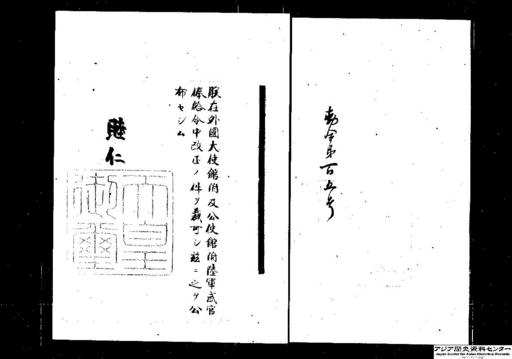 勅令第百五号
朕在外國大使館附及公使館附陸軍武官
俸給令中改正ノ件ヲ裁可シ茲ニ之ヲ公
布セシム
睦仁
天皇
御璽
アジア歴史資料センター
Japan Center for Asian Historical Records